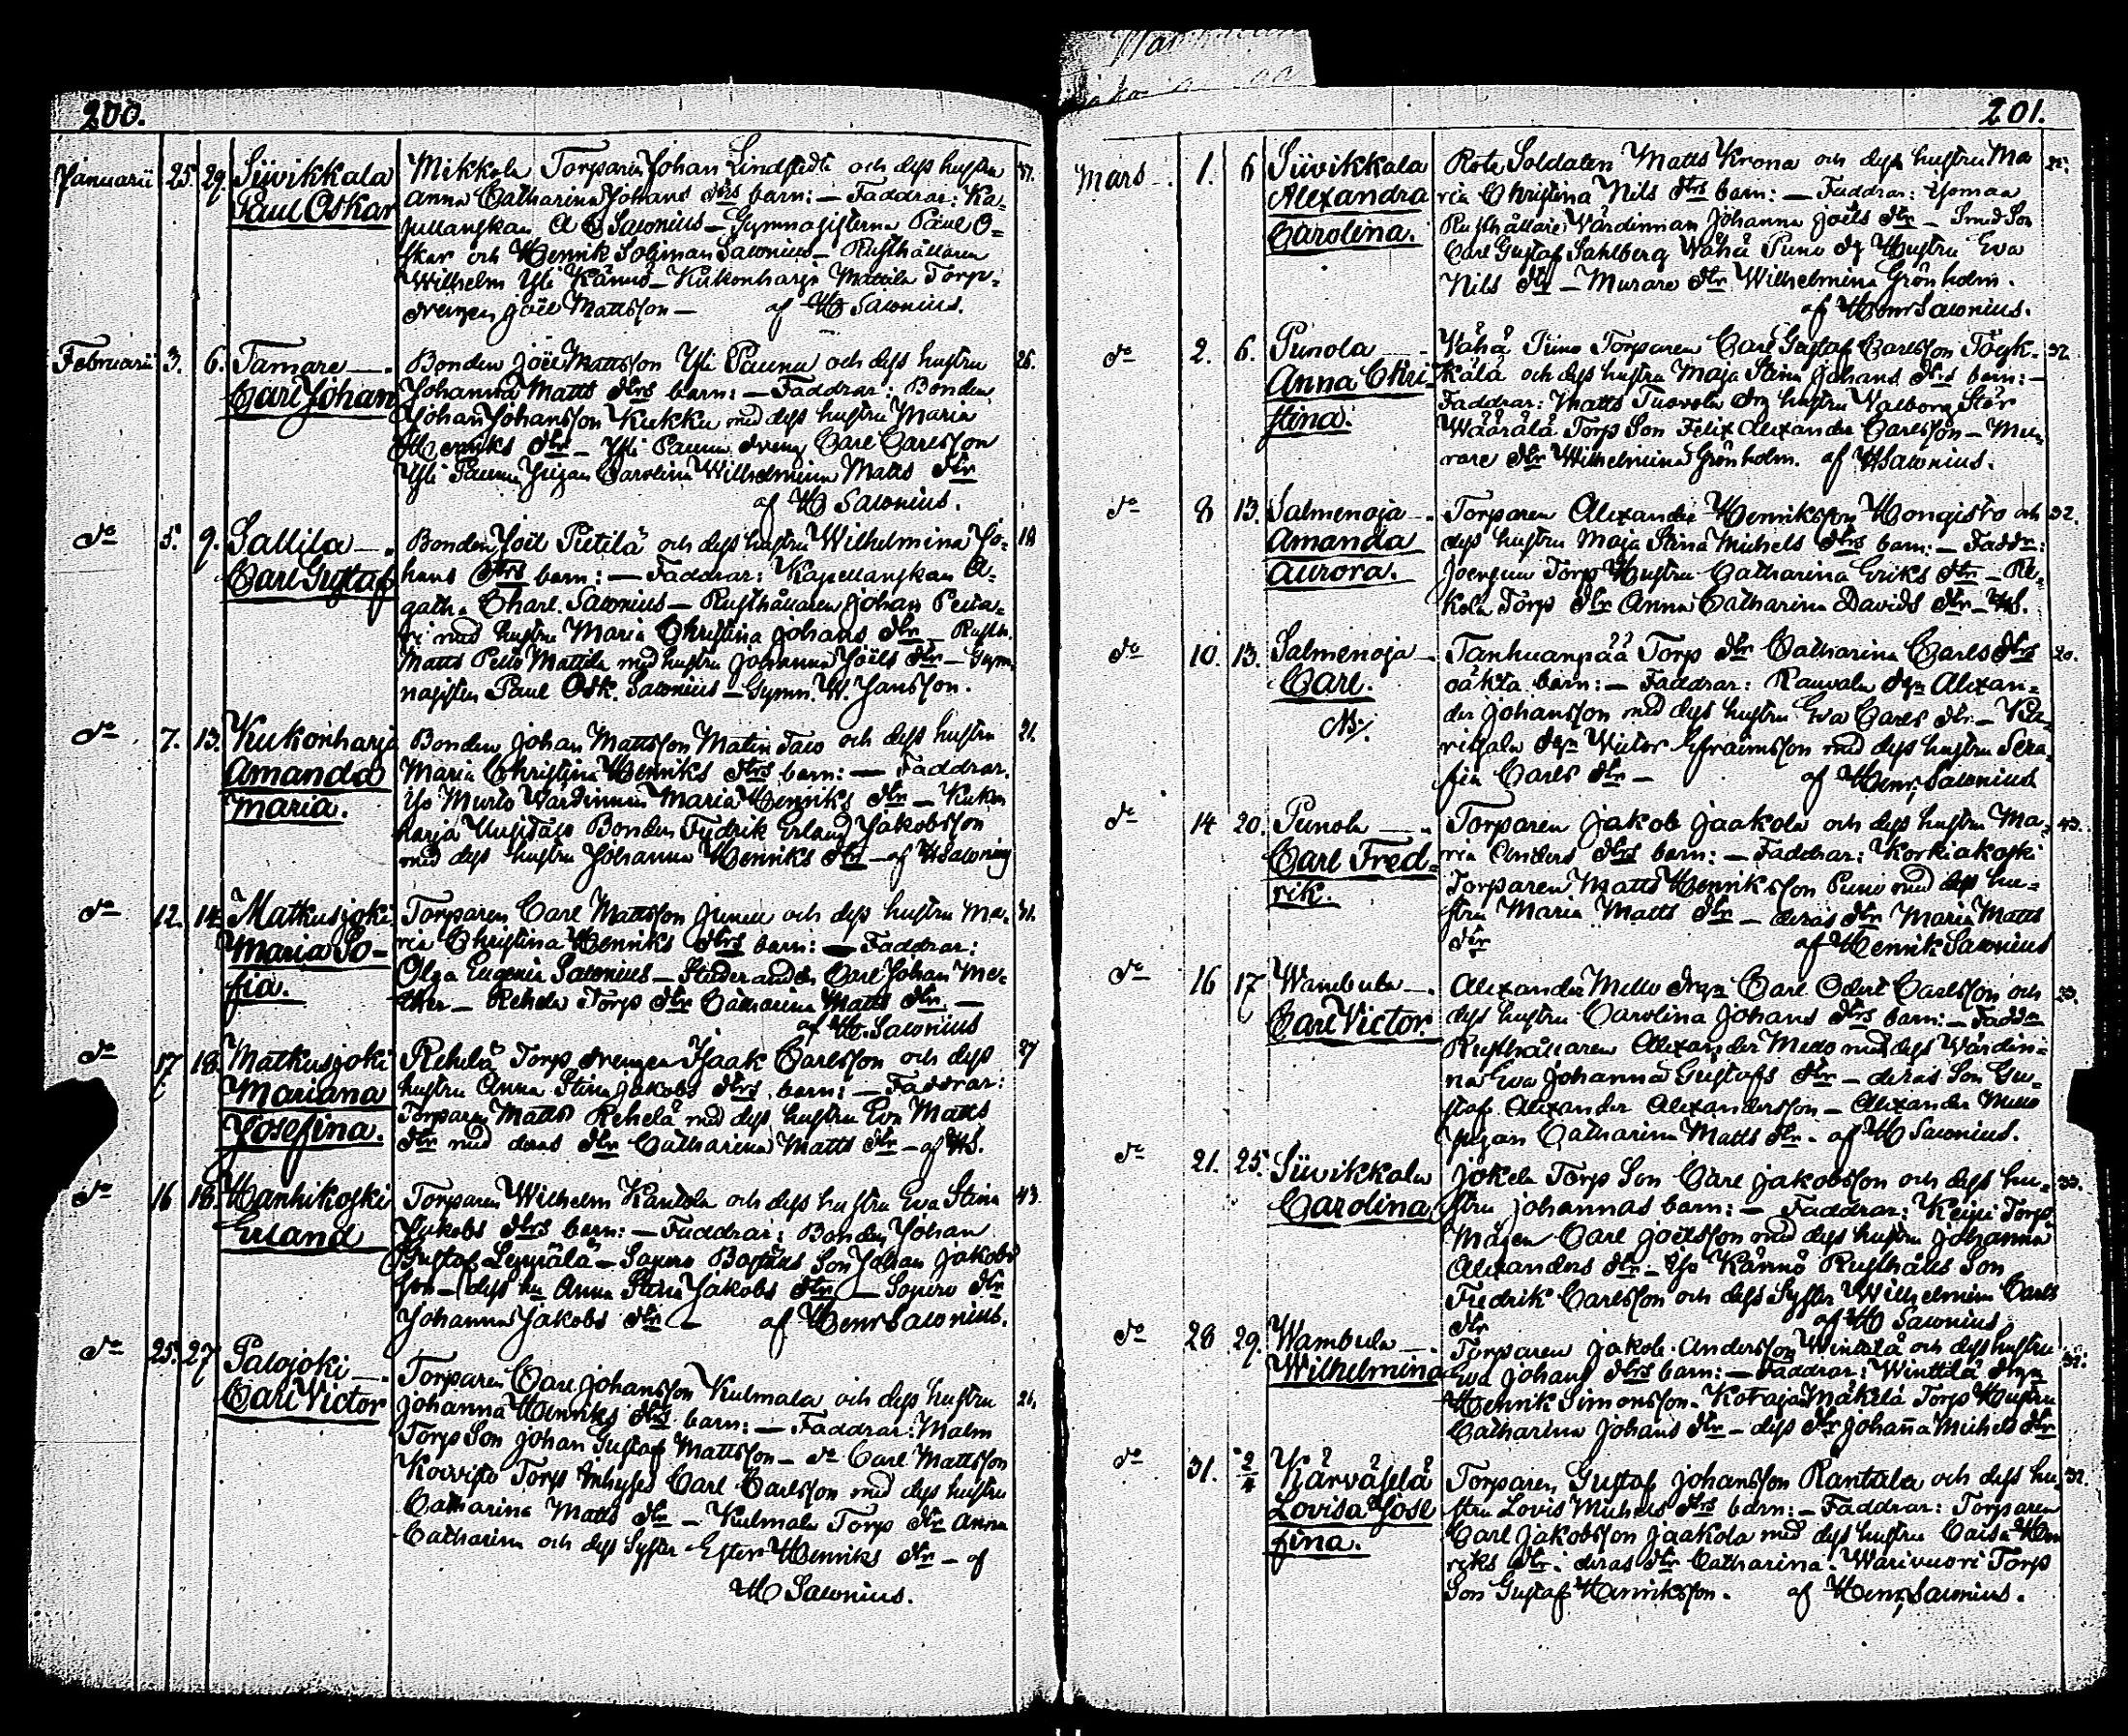 200.
Januarii 25. 29. Siivikkala Mikkola Torparen Johan Lindstedt och dess hustru
Paul Oskar Anna Catharina Johans dtrs barn: — Faddrar: Ka-
pellanskan A C Salonius — Gymnasisterna Paul O-
skar och Henrik Soliman Salonius — Rusthållaren
Wilhelm Yli Kännö — Kukonharja Mattila Torp-
drengen Joël Mattsson — af H Salonius.
Februarii 3. 6. Tamare —. Bonden Joël Mattsson Yli Paunu och dess hustru 26.
Carl Johan Johanna Matts dtrs barn: — Faddrar: Bonden
Johan Johansson Kukku med dess hustru Maria
Henriks dtr — Yli Paunu dreng Carl Carlsson
Yli Paunu Pigan Carolina Wilhelmina Matts dtr
af H Salonius.
do 5. 9. Sallila —. Bonden Joël Pietilä och dess hustru Wilhelmina Jo-
Carl Gustaf hans dtrs barn: — Faddrar: Kapellanskan A-
gatha Charl. Salonius — Rusthållaren Johan
med hustru Maria Christina Johans dtr — Rusth.
Matts Pelto Mattila med hustru Johanna Joëls dtr — Gym-
nasisten Paul Osk. Salonius — Gymn. W. Jansson.
do 7. 13. Kukonharja Bonden Johan Mattsson Matin Talo och dess hustru 21.
Amanda Maria Christina Henriks dtrs barn: — Faddrar.
Maria. Iso Murto Wärdinnan Maria Henriks dtr — Kukon
harja Uusitalo Bonden Fredrik Erland Jakobsson
med dess hustru Johanna Henriks dtr — af H Salonius
do 12. 14. Matkusjoki Torparen Carl Mattsson Junnu och dess hustru Ma- 31.
Maria So- ria Christina Henriks dtrs barn: — Faddrar:
fia. Olga Eugenia Salonius — Studeranden Carl Johan Me-
— Rehelä Torp dtr Catharina Matts dtr —
af H. Salonius
do 17 18. Matkusjoki Rehelä Torp drengen Isaak Carlsson och dess 27
Mariana hustru Anna Stina Jakobs dtrs barn: — Faddrar:
Josefina. Torparen Matts Rehelä med dess hustru Eva Matts
dtr med deras dtr Catharina Matts dtr — af HS.
do 16 18. Hanhikoski Torparen Wilhelm Kantola och dess hustru Eva Stina 43.
Erland Jakobs dtrs barn: — Faddrar: Bonden Johan
Gustaf Leppälä — Son Johan Jakobs
son — dess hu Anna Stina Jakobs dtr — dtr
Johanna Jakobs dtr — af Henr Salonius.
do 25. 27 Palojoki —. Torparen Carl Johansson Kulmala och dess hustru
Carl Victor Johanna Henriks dtrs barn: — Faddrar: Malm
Torp Son Johan Gustaf Mattsson — do Carl Mattsson
Koivisto Torp Inhyses Carl Carlsson med dess hustru
Catharina Matts dtr — Kulmala Torp dtr Anna
Catharina och dess Syster Ester Henriks dtr — af
H Salonius.
201.
Mars. 1. 6 Siivikkala Rote Soldaten Matts Krona och dess hustru Ma
Alexandra ria Christina Nils dtrs barn: — Faddrar:
Carolina. Rusthållare Wärdinnan Johanna Joëls dtr — Smed Son
Carl Gustaf Sahlberg Vähä Puno dg Hustru Eva
Nils dtr — Murare dtr Wilhelmina Grönholm.
af Henr Salonius.
do 2. 6. Punola Vähä Puno Torparen Carl Gustaf Carlsson 32
Anna Chri- och dess hustru Maja Stina Johans dtrs barn: —
stina. Faddrar: Matts Tuovola drg hustru Walborg
Torp Son Felix Alexander Carlsson — Mu-
rare dtr Wilhelmina Grönholm. af H Salonius.
do 8 13. Salmenoja —. Torparen Alexander Henriksson Hongisto och 32.
Amanda dess hustru Maja Stina Michels dtrs barn: — Faddr:
Aurora. Torp Hustru Catharina Eriks dtr —
Torp dtr Anna Catharina Davids dtr — HS.
do 10. 13. Salmenoja —. Tanhuanpää Torp dtr Catharina Carls dtrs 20.
Carl. oäkta barn: — Faddrar: Rauvala dgn Alexan-
der Johansson med dess hustru Eva Carls dtr —
dgn Wictor Efraimsson med dess hustru Sera-
fia Carls dtr — af Henr. Salonius
do 14 20. Punola —. Torparen Jakob Jaakola och dess hustru Ma- 43.
Carl Fred- ria Anders dtrs barn: — Faddrar: Korkiakoski
rik. Torparen Matts Henriksson Puno med dess hu-
stru Maria Matts dtr — deras dtr Maria Matts
dtr af Henrik Salonius
do 16 17 Wambula —. Alexander Mello drgn Carl Carlsson och
Carl Victor. dess hustru Carolina Johans dtrs barn: — Faddr
Rusthållaren Alexander Mello med dess Wärdin-
na Eva Johanna Gustafs dtr — deras Son Gu-
staf Alexander Alexandersson — Alexander Mello
pigan Catharina Matts dtr — af H Salonius.
do 21. 25. Siivikkala Jokela Torp Son Carl Jakobsson och dess hu- 33.
Carolina stru Johannas barn: — Faddrar: Torp
Mågen Carl Joëlsson med dess hustru Johanna
Alexanders dtr — Iso Kännö Rusthålls Son
Fredrik Carlsson och dess Syster Wilhelmina Carls
dtr af H Salonius
do 28 29. Wambula —. Torparen Jakob Andersson Winttilä och dess hustru
Wilhelmina Eva Johans dtrs barn: — Faddrar: Winttilä drgn
Henrik Simonsson. Mäkelä Torp Hustru
Catharina Johans dtr — dess dtr Johanna Michels dtr
do 31. 2/4 Kärväselä Torparen Gustaf Johansson Rantala och dess hu- 32.
Lovisa Jose stru Lovis Michels dtrs barn: — Faddrar: Torparen
fina. Carl Jakobsson Jaakola med dess hustru Caisa Hen
riks dtr: deras dtr Catharina: Warivuori Torp
Son Gustaf Henriksson. af Henr. Salonius.